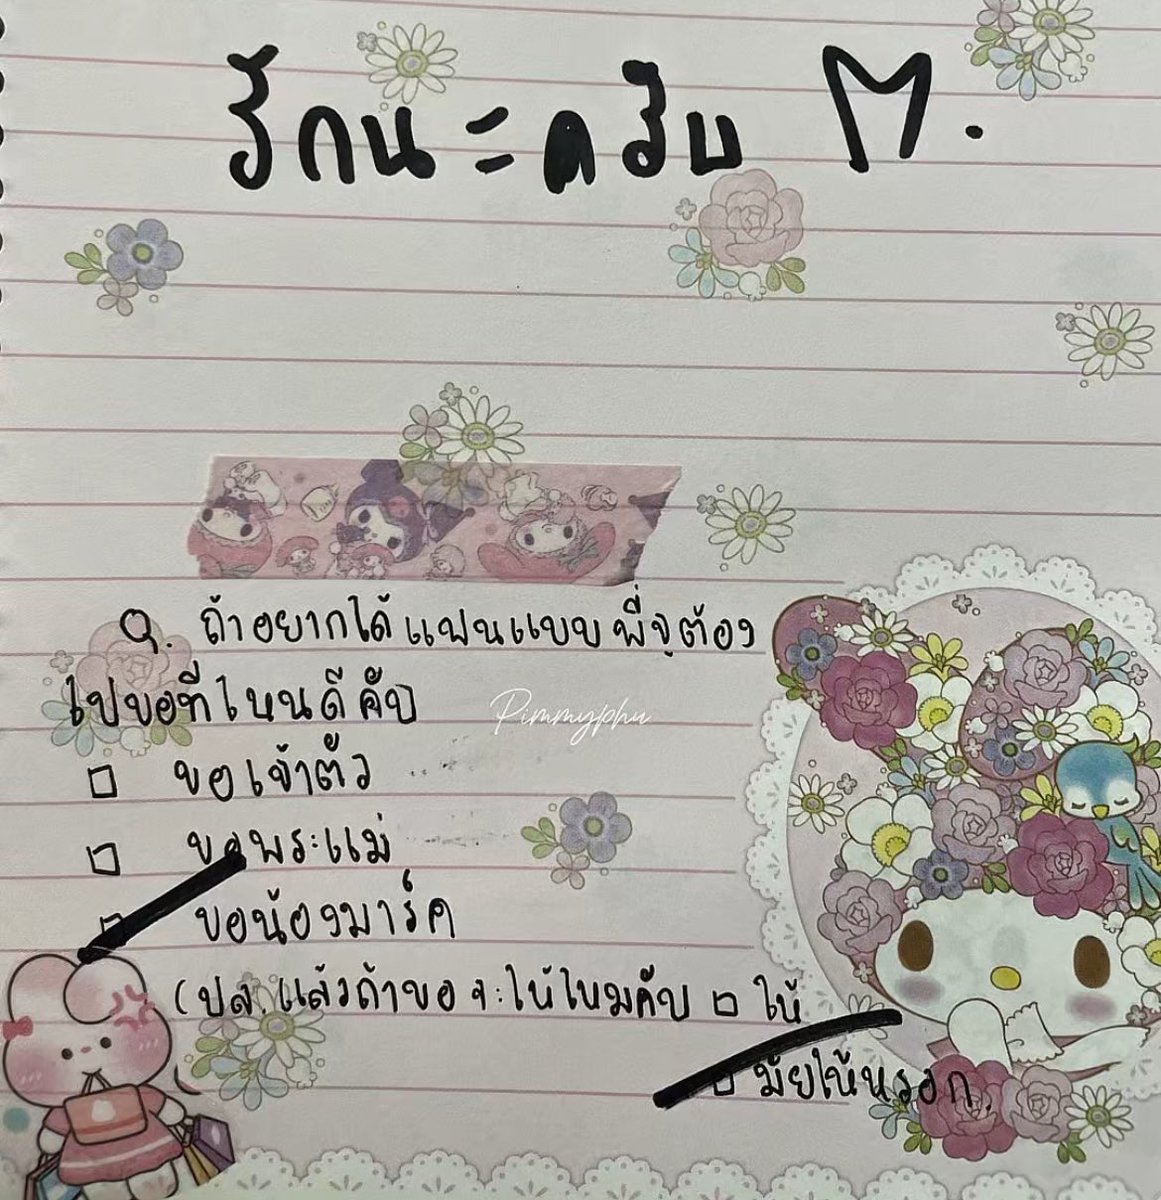 รักนะครับ M.
Q. ถ้าอยากได้แฟนแบบพี่จุต้อง
ไปขอที่ไหนดีคับ
Pimmyphu
□ ขอเจ้าตัว
□ ขอพระแม่
□ ขอน้องมาร์ค
(ปล. แล้วถ้าขอจะให้ไหมคับ □ ให้
□ มัยให้หรอก